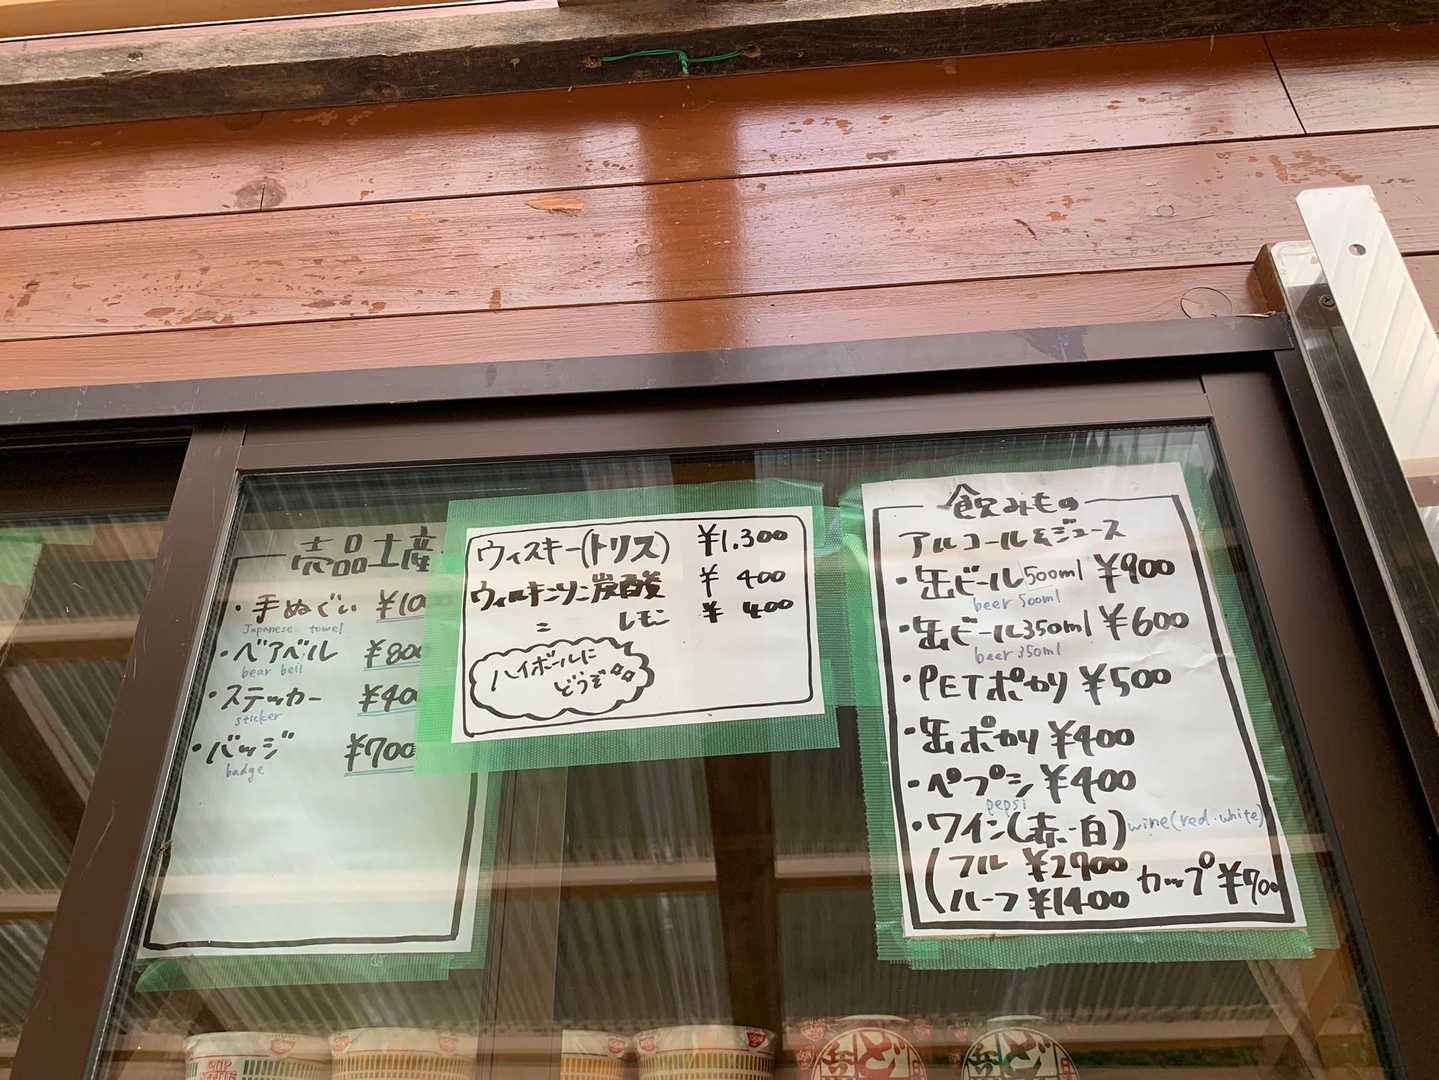 売品土産
・手ぬぐい
Japanese towel
・ベアベル ¥800
bear bell
・ステッカー ¥400
sticker
・バッジ ¥700
badge
ウィスキー(トリス) ¥1,300
ウィルキンソン炭酸 ¥400
〃 レモン ¥400
ハイボールに
どうぞ
飲みもの
アルコール&ジュース
・缶ビール500ml ¥900
beer 500ml
・缶ビール350ml ¥600
beer 350ml
・PETポカリ ¥500
・缶ポカリ ¥400
・ペプシ ¥400
pepsi
・ワイン(赤・白) wine(red・white)
フル ¥2700 カップ ¥700
ハーフ ¥1400